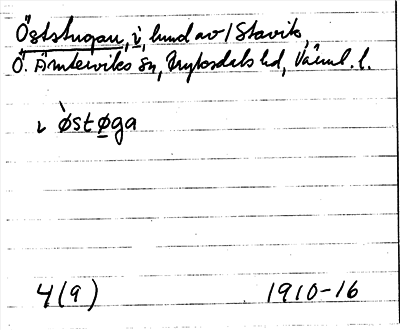 Öststugan, i, lund av / Stavik,
Ö. Ämterviks sn, Fryksdals hd, Värml. l.
ı ø̀stø̠ga
4(9) 1910-16